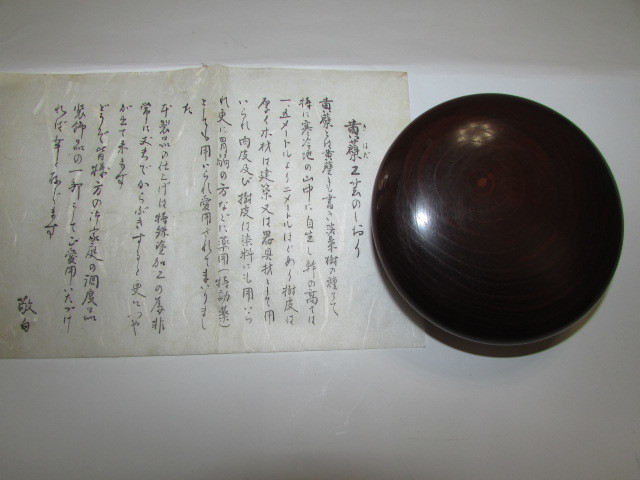 きはだ
黄蘗工芸のしおり
黄蘗とは黄蘗とも書き落葉樹の種類で
特に寒冷地の山中に自生し幹の高さは
一五メートルより二メートルほどあり樹皮は
厚く木材は建築又は器具材として用
いられ肉皮及び樹皮は染料にも用いら
れ更に胃弱の方などに薬用(特効薬)
としても用いられ愛用されて参りまし
た
本製品の仕上げは特殊塗加工の為非
常に丈夫でからぶきすると更につや
が出て来ます
どうぞ皆様方の御家庭の調度品
装飾品の一部としてご愛用いただけ
れば幸に存じます
敬白